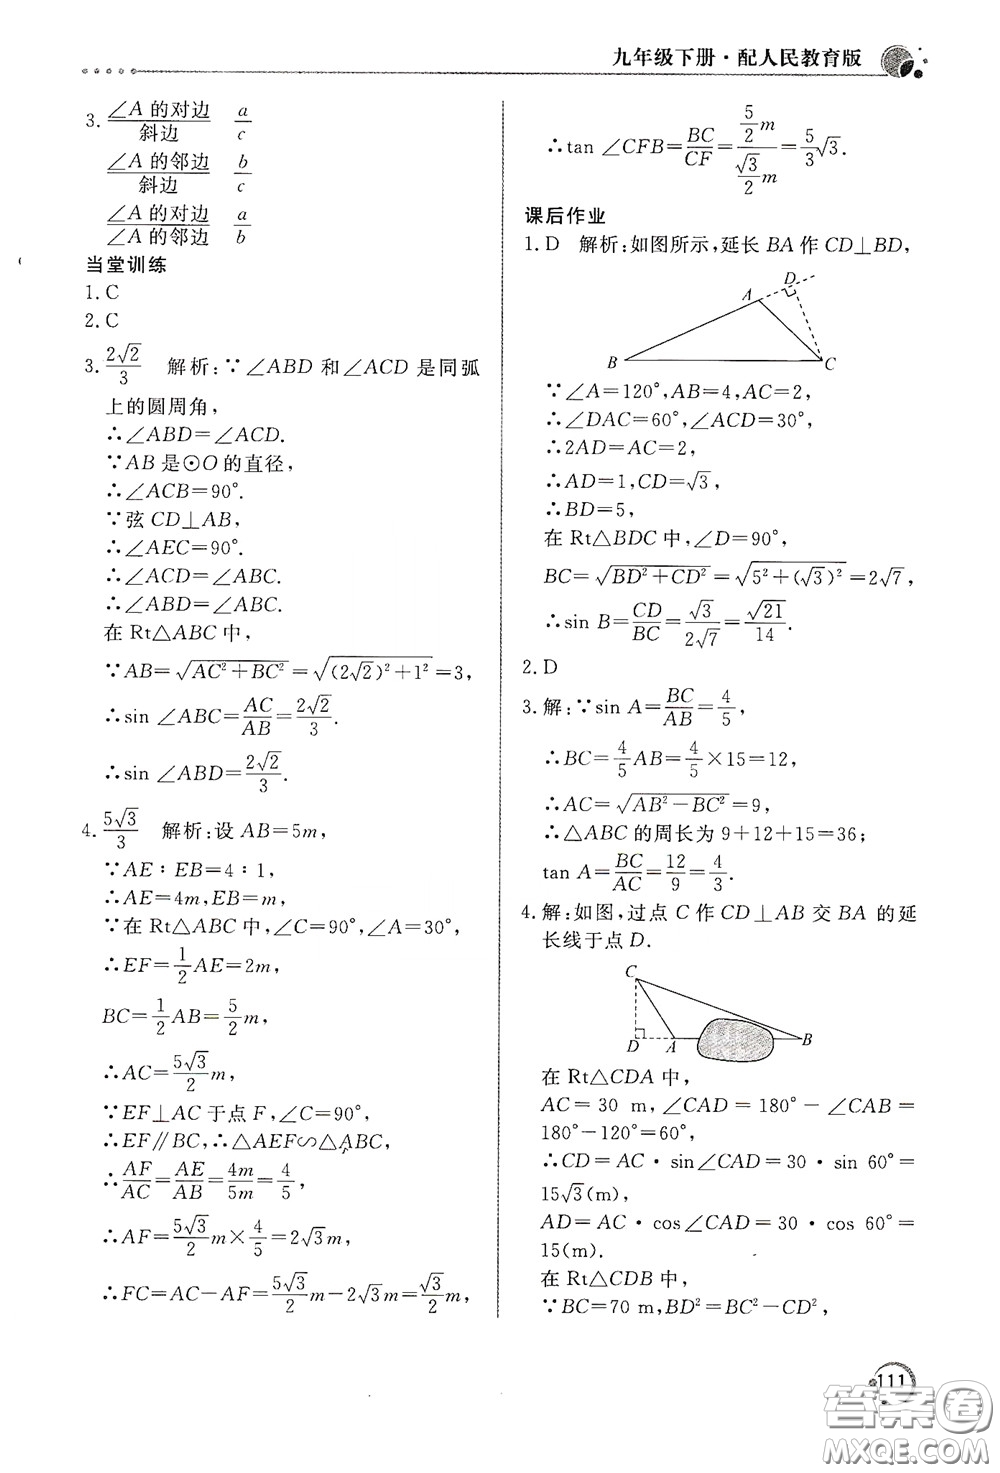 九年级下册·配人民教育版
3. ∠A 的对边/斜边 a/c
∠A 的邻边/斜边 b/c
∠A 的对边/∠A 的邻边 a/b
当堂训练
1. C
2. C
3. 2√2/3 解析:∵∠ABD 和∠ACD 是同弧
上的圆周角,
∴∠ABD=∠ACD.
∵AB 是⊙O 的直径,
∴∠ACB=90°.
∵弦 CD⊥AB,
∴∠AEC=90°.
∴∠ACD=∠ABC.
∴∠ABD=∠ABC.
在 Rt△ABC 中,
∵AB=√(AC²+BC²)=√((2√2)²+1²)=3,
∴sin ∠ABC=AC/AB=2√2/3.
∴sin ∠ABD=2√2/3.
4. 5√3/3 解析:设 AB=5m,
∵AE∶EB=4∶1,
∴AE=4m,EB=m,
∵在 Rt△ABC 中,∠C=90°,∠A=30°,
∴EF=1/2 AE=2m,
BC=1/2 AB=5/2 m,
∴AC=5√3/2 m,
∵EF⊥AC 于点 F,∠C=90°,
∴EF∥BC,∴△AEF∽△ABC,
∴AF/AC=AE/AB=4m/5m=4/5,
∴AF=5√3/2 m×4/5=2√3m,
∴FC=AC-AF=5√3/2 m-2√3m=√3/2 m,
∴tan ∠CFB=BC/CF=(5/2 m)/(√3/2 m)=5/3 √3.
课后作业
1. D 解析:如图所示,延长 BA 作 CD⊥BD,
D
A
B
C
∵∠A=120°,AB=4,AC=2,
∴∠DAC=60°,∠ACD=30°,
∴2AD=AC=2,
∴AD=1,CD=√3,
∴BD=5,
在 Rt△BDC 中,∠D=90°,
BC=√(BD²+CD²)=√(5²+(√3)²)=2√7,
∴sin B=CD/BC=√3/2√7=√21/14.
2. D
3. 解:∵sin A=BC/AB=4/5,
∴BC=4/5 AB=4/5×15=12,
∴AC=√(AB²-BC²)=9,
∴△ABC 的周长为 9+12+15=36;
tan A=BC/AC=12/9=4/3.
4. 解:如图,过点 C 作 CD⊥AB 交 BA 的延
长线于点 D.
C
D A B
在 Rt△CDA 中,
AC=30 m,∠CAD=180°-∠CAB=
180°-120°=60°,
∴CD=AC·sin∠CAD=30·sin 60°=
15√3(m),
AD=AC·cos∠CAD=30·cos 60°=
15(m).
在 Rt△CDB 中,
∵BC=70 m,BD²=BC²-CD²,
111
答案圈
MXQE.COM